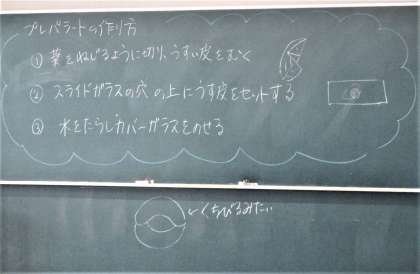 プレパラートの作り方
① 葉をねじるように切り、うすい皮をむく
② スライドガラスの穴の上にうす皮をセットする
③ 水をたらしカバーガラスをのせる
くちびるみたい